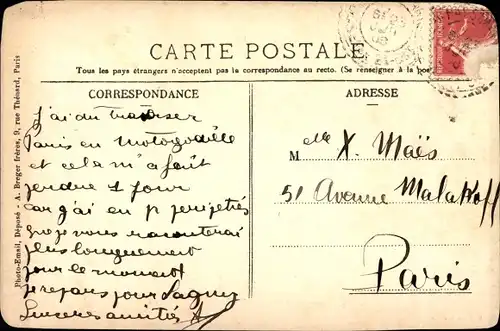 CARTE POSTALE
Tous les pays étrangers n'acceptent pas la correspondance au recto. (Se renseigner à la pos
CORRESPONDANCE
J'ai du traverser
Paris en Motogodille
et cela m'a fait
perdre 1 jour
car j'ai eu péripéties
que je vous raconterai
plus longuement
pour le moment
je repars pour Lagny
Sincères amitiés
ADRESSE
Mlle X. Maës
51 Avenue Malakoff
Paris
Photo-Email, Déposé - A. Breger frères, 9, rue Thénard, Paris